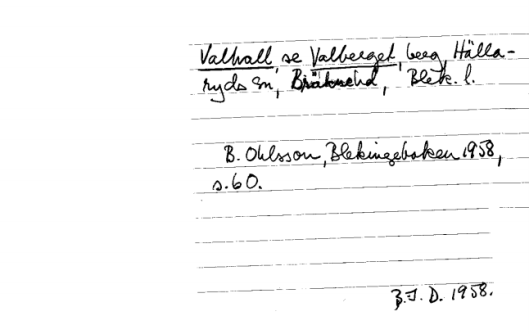 Valhall se Valberget, berg, Hälla-
ryds sn, Bräknehd, Blek. l.
B. Ohlsson, Blekingeboken 1958,
s. 60.
B.J. D. 1958.